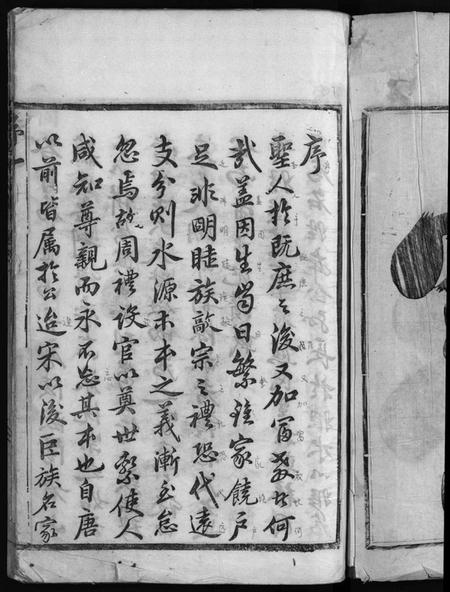 序
聖人於既庶之後又加富教者何
哉蓋因生齒日繁雖家饒戶
足非明睦族敬宗之禮恐代遠
支分則水源木本之義漸至怠
忽焉故周禮設官以奠世繫使人
咸知尊親而永不忘其本也自唐
以前皆属於公迨宋以後臣族名家
序一